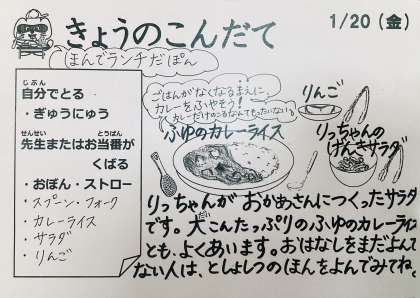 きょうのこんだて
1/20(金)
ほんでランチだぽん
じぶん
自分でとる
・ぎゅうにゅう
せんせい とうばん
先生またはお当番が
くばる
・おぼん・ストロー
・スプーン・フォーク
・カレーライス
・サラダ
・りんご
ごはんがなくなるまえに、
カレーをふやそう!
カレーだけのこるなんてもったいない。
ふゆのカレーライス
りんご
りっちゃんの
げんきサラダ
りっちゃんが おかあさんにつくったサラダ
です。大こんたっぷりのふゆのカレーライス
とも、よくあいます。おはなしをまだよんで
ない人は、としょしつのほんをよんでみてね。